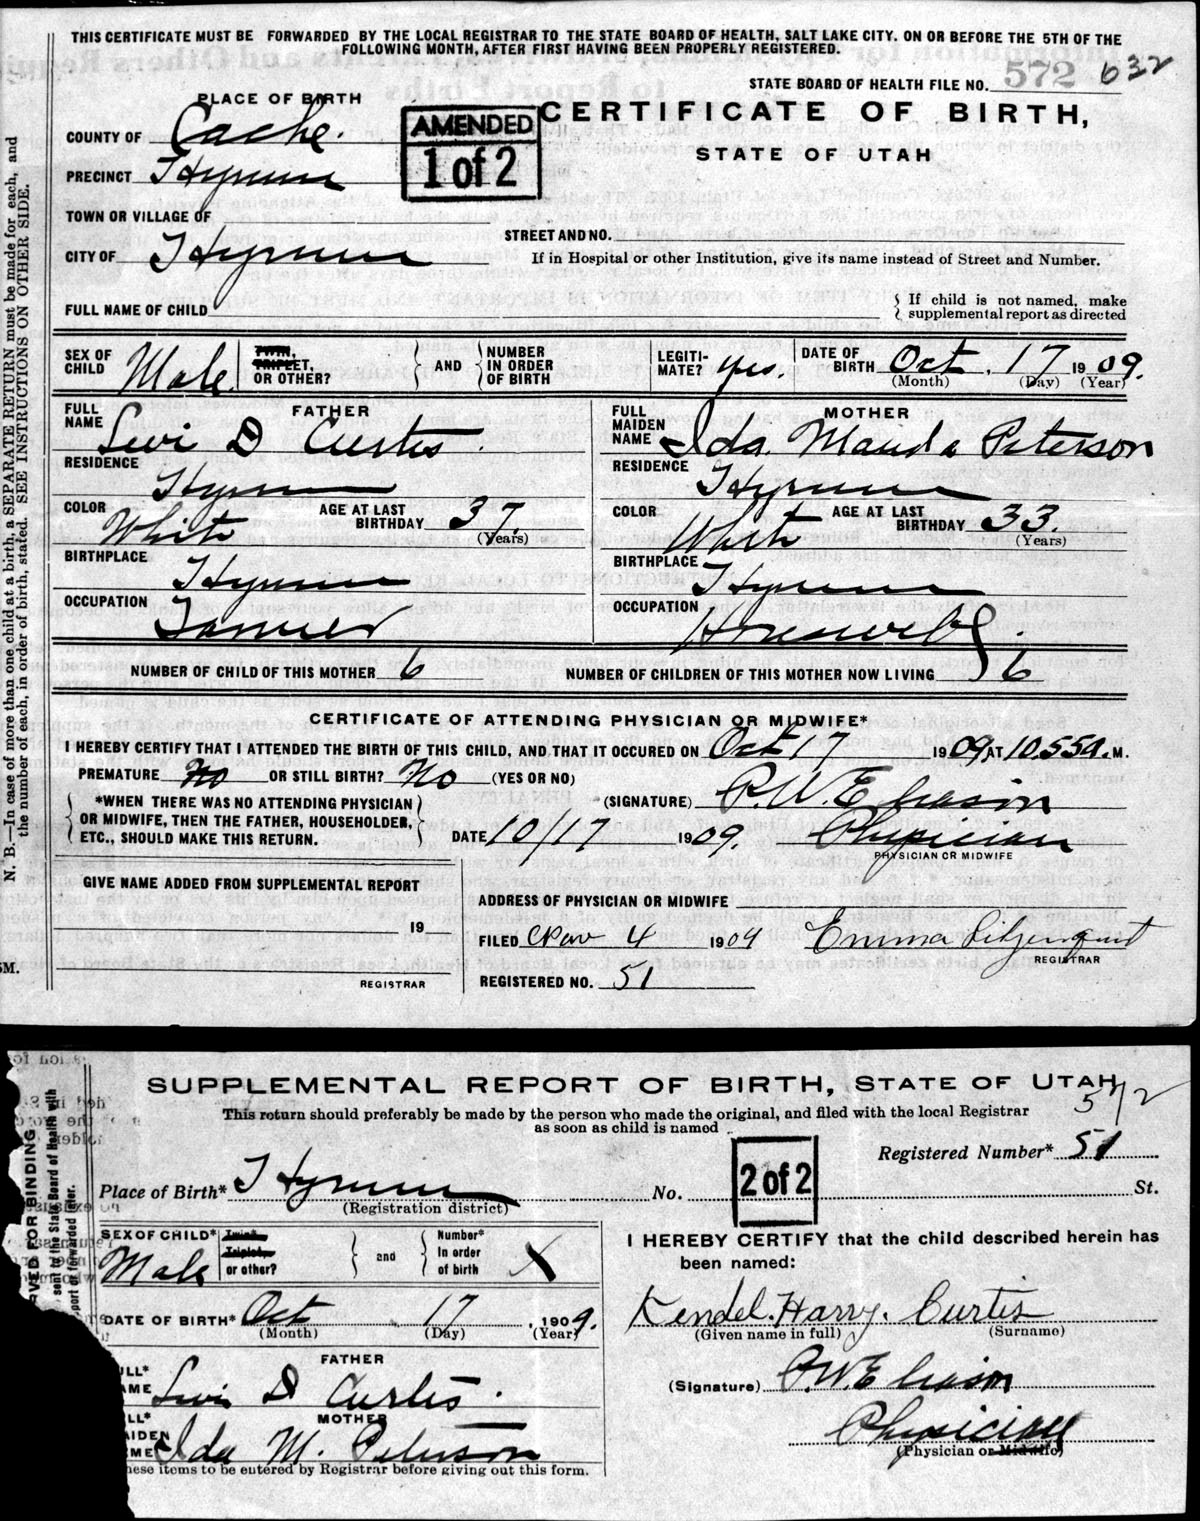 THIS CERTIFICATE MUST BE FORWARDED BY THE LOCAL REGISTRAR TO THE STATE BOARD OF HEALTH, SALT LAKE CITY. ON OR BEFORE THE 5TH OF THE
FOLLOWING MONTH, AFTER FIRST HAVING BEEN PROPERLY REGISTERED.
STATE BOARD OF HEALTH FILE NO. 572 632
PLACE OF BIRTH
CERTIFICATE OF BIRTH,
STATE OF UTAH
AMENDED
1 of 2
COUNTY OF Cache.
PRECINCT Hyrum
TOWN OR VILLAGE OF
STREET AND NO.
CITY OF Hyrum
If in Hospital or other Institution, give its name instead of Street and Number.
FULL NAME OF CHILD
If child is not named, make
supplemental report as directed
SEX OF CHILD Male.
TWIN, TRIPLET, OR OTHER?
AND
NUMBER IN ORDER OF BIRTH
LEGITIMATE? yes.
DATE OF BIRTH Oct. 17 1909.
(Month) (Day) (Year)
FATHER
FULL NAME Levi D Curtis.
RESIDENCE Hyrum
COLOR White
AGE AT LAST BIRTHDAY 37.
(Years)
BIRTHPLACE Hyrum
OCCUPATION
MOTHER
FULL MAIDEN NAME Ida. Manda Peterson
RESIDENCE Hyrum
COLOR White
AGE AT LAST BIRTHDAY 33.
(Years)
BIRTHPLACE Hyrum
OCCUPATION Housewife.
NUMBER OF CHILD OF THIS MOTHER 6
NUMBER OF CHILDREN OF THIS MOTHER NOW LIVING 6
CERTIFICATE OF ATTENDING PHYSICIAN OR MIDWIFE*
I HEREBY CERTIFY THAT I ATTENDED THE BIRTH OF THIS CHILD, AND THAT IT OCCURED ON Oct 17 1909 AT 10.55 a. M.
PREMATURE No OR STILL BIRTH? No (YES OR NO)
(SIGNATURE) P.W. Eliason
*WHEN THERE WAS NO ATTENDING PHYSICIAN
OR MIDWIFE, THEN THE FATHER, HOUSEHOLDER,
ETC., SHOULD MAKE THIS RETURN.
DATE 10/17 1909. Physician
PHYSICIAN OR MIDWIFE
GIVE NAME ADDED FROM SUPPLEMENTAL REPORT
19
REGISTRAR
ADDRESS OF PHYSICIAN OR MIDWIFE
FILED Nov 4 1909 Emma Liljenquist
REGISTRAR
REGISTERED NO. 51
N. B.—In case of more than one child at a birth, a SEPARATE RETURN must be made for each, and
the number of each, in order of birth, stated. SEE INSTRUCTIONS ON OTHER SIDE.
5M.
SUPPLEMENTAL REPORT OF BIRTH, STATE OF UTAH
572
This return should preferably be made by the person who made the original, and filed with the local Registrar
as soon as child is named
Registered Number* 51
2 of 2
Place of Birth* Hyrum No. St.
(Registration district)
SEX OF CHILD* Male
Twin* Triplet, or other?
and
Number* In order of birth X
DATE OF BIRTH* Oct 17, 1909.
(Month) (Day) (Year)
FATHER
ULL* AME Levi D Curtis.
MOTHER
LL* AIDEN ME* Ida M. Peterson
hese items to be entered by Registrar before giving out this form.
I HEREBY CERTIFY that the child described herein has
been named:
Kendel. Harry. Curtis
(Given name in full) (Surname)
(Signature) P.W. Eliason
Physician
(Physician or Midwife)
RVED FOR BINDING
sent to the State Board of Health with
port of forwarded later.